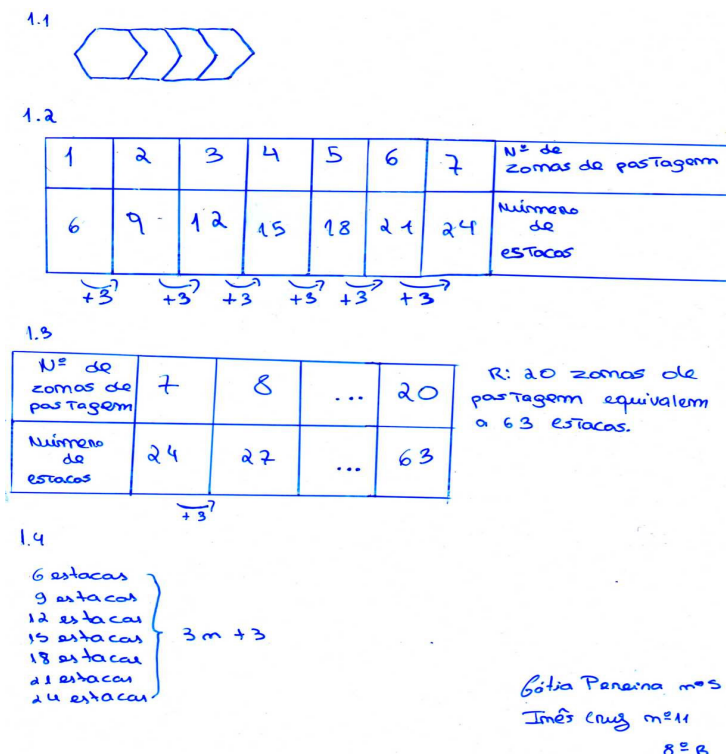 1.1
1.2
1 2 3 4 5 6 7 Nº de zonas de pastagem
6 9 12 15 18 21 24 Número de estacas
+3 +3 +3 +3 +3 +3
1.3
Nº de zonas de pastagem 7 8 ... 20
Número de estacas 24 27 ... 63
+3
R: 20 zonas de
pastagem equivalem
a 63 estacas.
1.4
6 estacas
9 estacas
12 estacas
15 estacas
18 estacas
21 estacas
24 estacas
3n + 3
Cátia Pereira nº5
Inês Cruz nº11
8º B